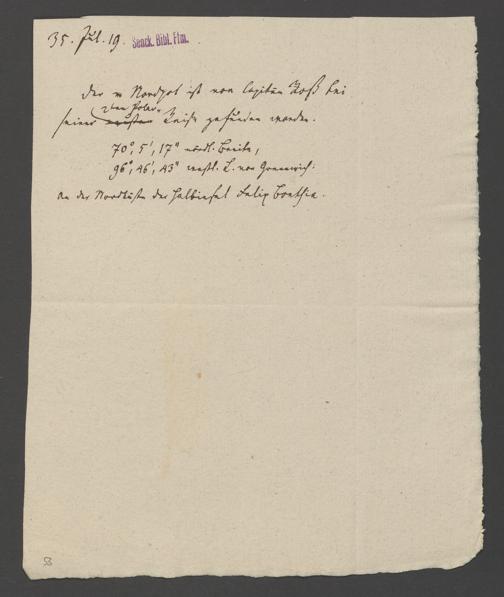 35. Jul. 19. Senck. Bibl. Ffm.
Der m Nordpol ist von Capitän Roß bei
2ten Polar-
seiner ersten Reise gefunden worden.
70°, 5', 17" nördl. Breite,
96°, 46', 43" westl. L. von Greenwich.
an der Nordküste der Halbinsel Felix Boothia.